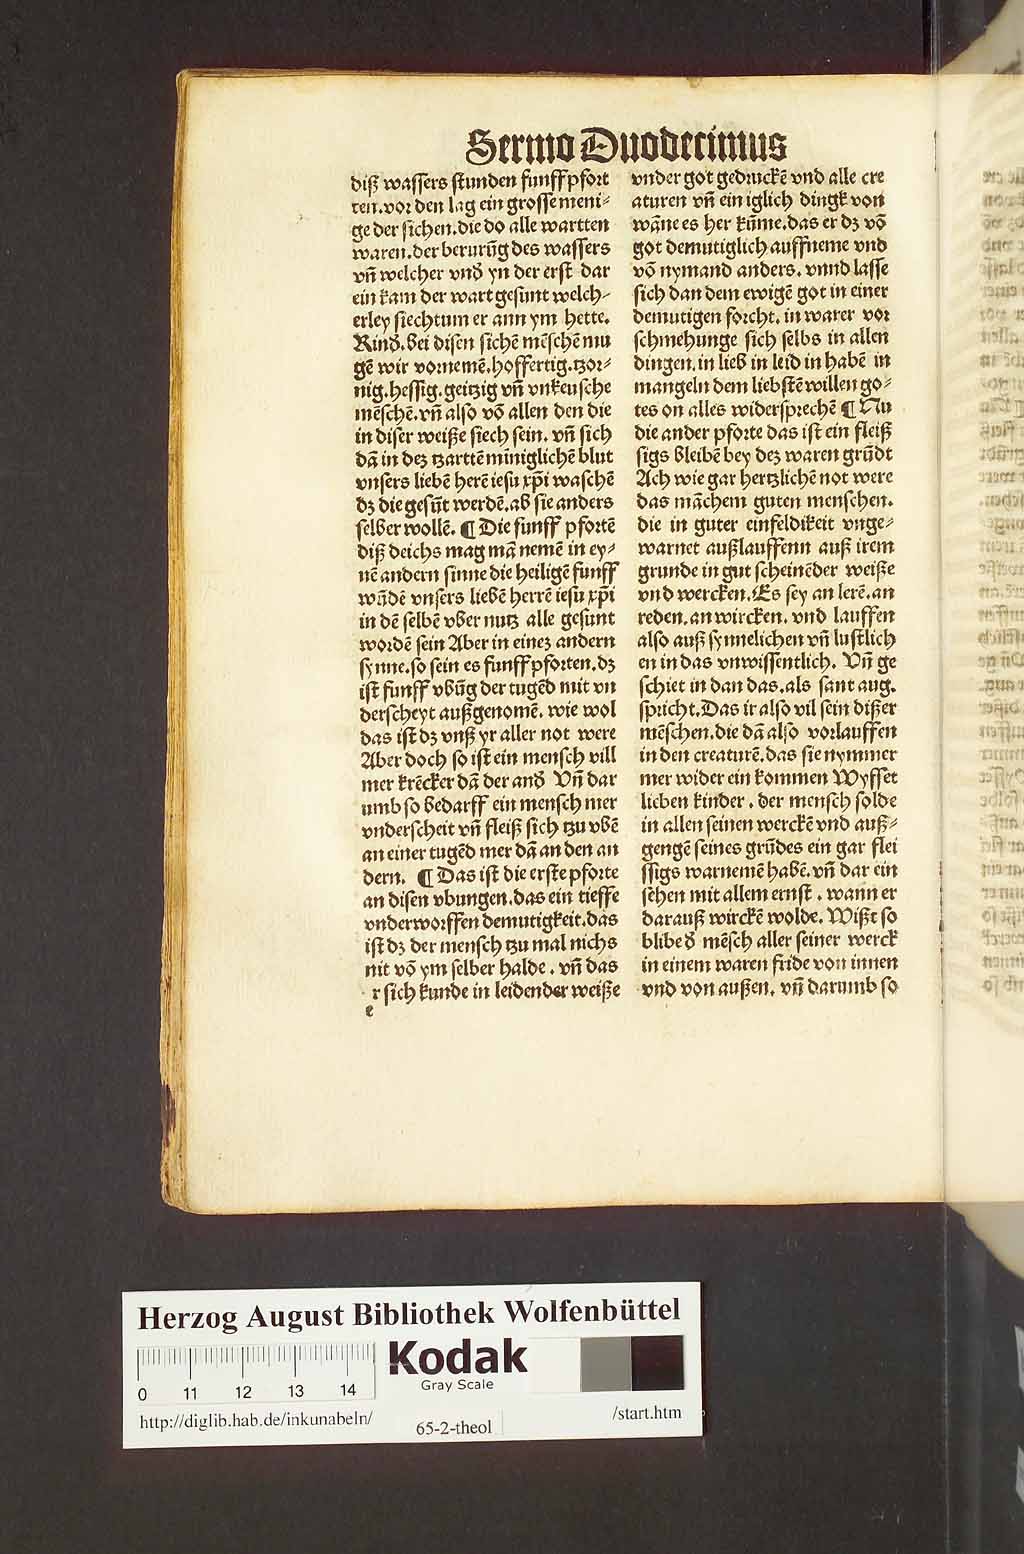 Sermo Duodecimus
diß wassers stunden funff pfort
ten. vor den lag ein grosse meni⸗
ge der sichen. die do alle wartten
waren. der berurūg des wassers
vn̄ welcher vnd̕ yn der erst dar
ein kam der wart gesunt welch⸗
erley siechtum er ann ym hette.
Kind̕. bei disen sichē mēschē mu
gē wir vornemē. hoffertig. tzor⸗
nig. hessig. geitzig vn̄ vnkeusche
mēschē. vn̄ also vō allen den die
in diser weiße siech sein. vn̄ sich
dā in dez tzarttē miniglichē blut
vnsers liebē herē iesu xp̄i waschē
dz die gesūt werdē. ab sie anders
selber wollē. ¶ Die funff pfortē
diß deichs mag mā nemē in ey⸗
nē andern sinne die heiligē funff
wūdē vnsers liebē herrē iesu xp̄i
in dē selbē vber nutz alle gesunt
wordē sein Aber in einez andern
synne. so sein es funff pforten. dz
ist funff vbūg der tugēd mit vn
derscheyt außgenomē. wie wol
das ist dz vnß yr aller not were
Aber doch so ist ein mensch vill
mer krēcker dā der and̕ Vn̄ dar
umb so bedarff ein mensch mer
vnderscheit vn̄ fleiß sich tzu vbē
an einer tugēd mer dā an den an
dern. ¶ Das ist die erste pforte
an disen vbungen. das ein tieffe
vnderworffen demutigkeit. das
ist dz der mensch tzu mal nichs
nit vō ym selber halde. vn̄ das
r sich kunde in leidender weiße
e
vnder got gedruckē vnd alle cre
aturen vn̄ ein iglich dingk von
wāne es her kūme. das er dz vō
got demutiglich auffneme vnd
vō nymand anders. vnnd lasse
sich dan dem ewigē got in einer
demutigen forcht. in warer vor
schmehunge sich selbs in allen
dingen. in lieb in leid in habē in
mangeln dem liebstē willen go⸗
tes on alles widersprechē ¶ Nu
die ander pforte das ist ein fleiß
sigs bleibē bey dez waren grūdt
Ach wie gar hertzlichē not were
das māchem guten menschen.
die in guter einfeldikeit vnge⸗
warnet außlauffenn auß irem
grunde in gut scheinēder weiße
vnd wercken. Es sey an lerē. an
reden. an wircken. vnd lauffen
also auß synnelichen vn̄ lustlich
en in das vnwissentlich. Vn̄ ge
schiet in dan das. als sant aug.
spricht. Das ir also vil sein dißer
mēschen. die dā also vorlauffen
in den creaturē. das sie nymmer
mer wider ein kommen Wysset
lieben kinder. der mensch solde
in allen seinen werckē vnd auß⸗
gengē seines grūdes ein gar flei
ssigs warnemē habē. vn̄ dar ein
sehen mit allem ernst. wann er
darauß wirckē wolde. Wißt so
blibe d̕ mēsch aller seiner werck
in einem waren fride von innen
vnd von außen. vn̄ darumb so
Herzog August Bibliothek Wolfenbüttel
Kodak
Gray Scale
0 11 12 13 14
http://diglib.hab.de/inkunabeln/
65-2-theol
/start.htm